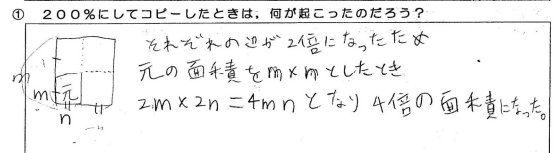 ① 200%にしてコピーしたときは，何が起こったのだろう？
それぞれの辺が2倍になったため
元の面積をm×mとしたとき
2m×2n=4mnとなり4倍の面積になった。
m
m 元
n